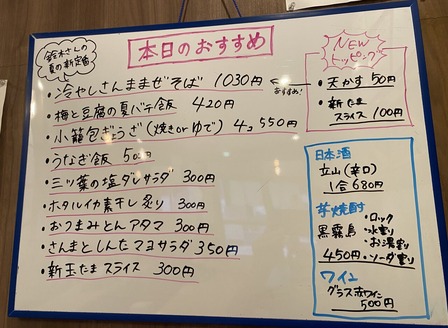 鈴木さんの
夏の新定番
本日のおすすめ
・冷やしさんままぜそば 1030円
おすすめ!
・梅と豆腐の夏バテ飯 420円
・小籠包ぎょうざ(焼きorゆで) 4コ550円
・うなぎ飯
・三ツ葉の塩ダレサラダ 300円
・ホタルイカ素干し炙り 300円
・おつまみとんアタマ 300円
・さんまとしんたマヨサラダ 350円
・新玉たまスライス 300円
NEW
トッピング
・天かす 50円
・新たま
スライス 100円
日本酒
立山(辛口)
1合 680円
芋焼酎
黒霧島
・ロック
・水割り
・お湯割り
・ソーダ割り
450円
ワイン
グラス赤ワイン
500円